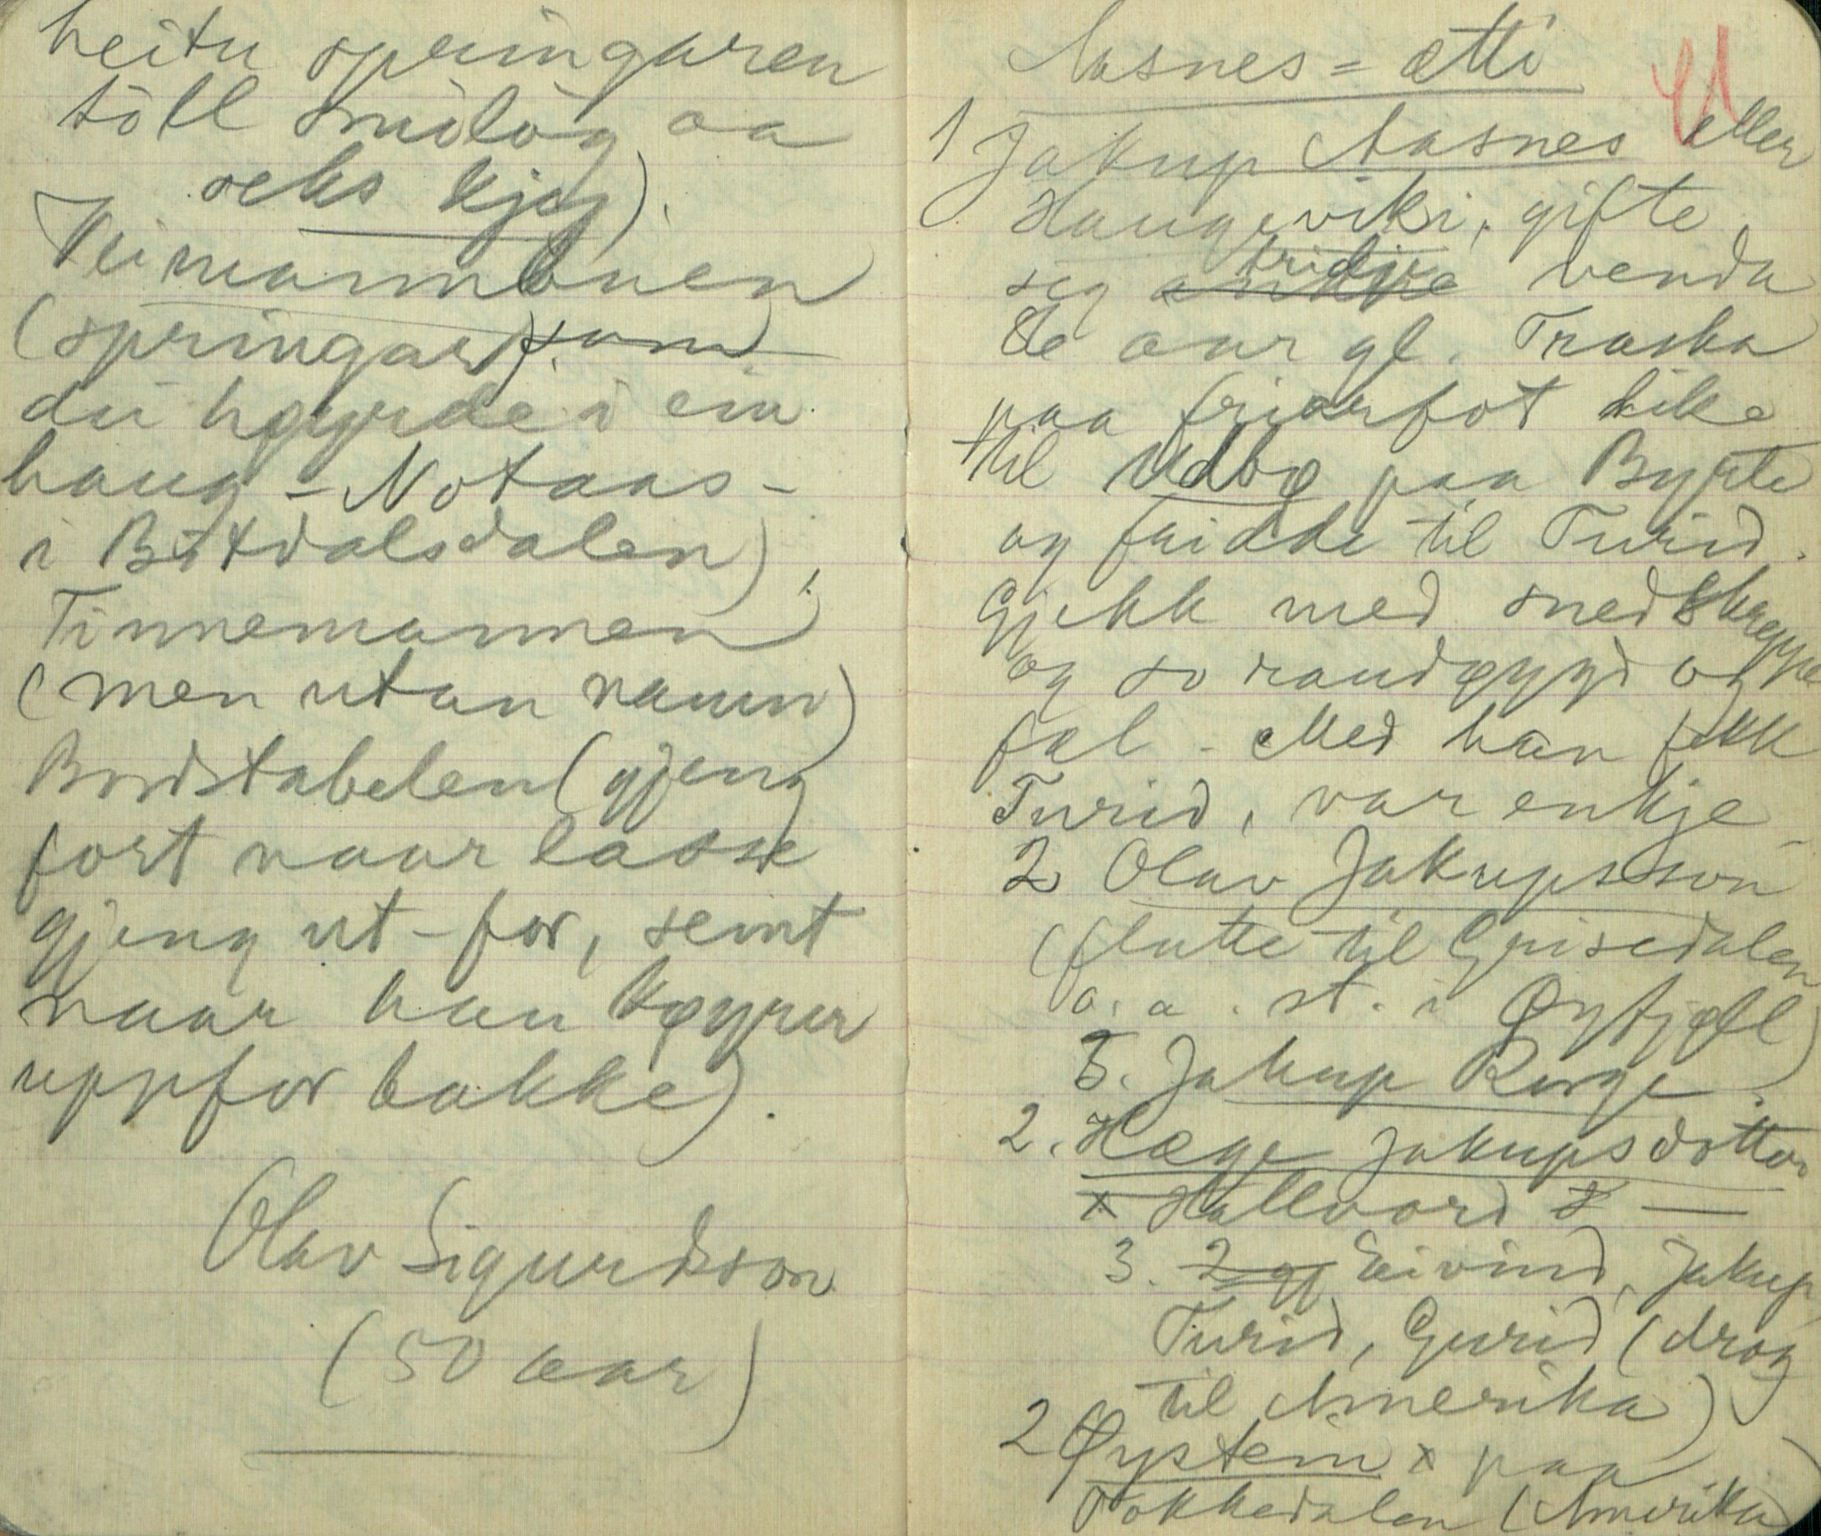 heitu springaren
toll smolog aa
seks kjøy).
Veimannslonen
(springar) som
du høyrde i ein
haug - Notaas -
i Botdalsdalen),
Tinnemannen
(men utan namn)
Bordstabelen (gjeng
fort naar lasse
gjeng ut-for, seint
naar han køyrer
uppfor bakke).
Olav Sigurdsson
(50 aar)
Aasnes-ætti
1 Jakup Aasnes eller
Haugeviki, gifte
tridje
seg venda
80 aar gl. Traska
paa friarfot like
til Udbø paa Bykle
og fridde til Turid.
Gjekk med snedskreppe
og so raudøygd og
fæl - Med han fekk
Turid, var enkje
2 Olav Jakupsson
(flutte til Grisedalen
o. a. st. i Øyfjell)
3. Jakup Rorge.
2. Hæge Jakupsdotter
x Hallvord x —
3. 2 og Eivind, Jakup,
Turid, Gurid (drog
til Amerika)
2 Øystein x paa
Tokkedalen (Amerika)